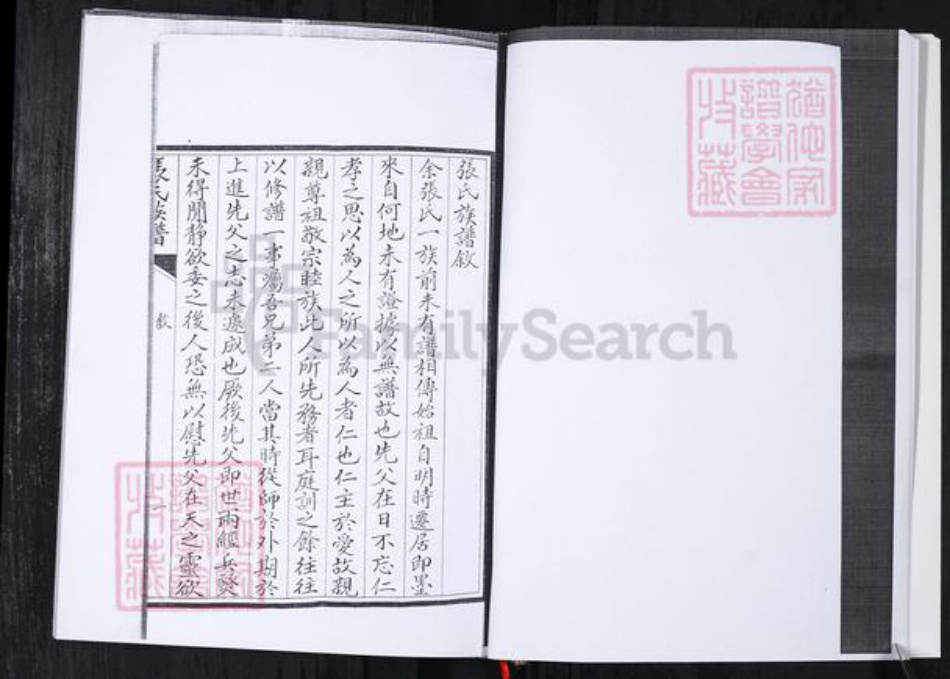 張氏族譜敘
余張氏一族前未有譜相傳始祖自明時遷居即墨
來自何地未有證據以無譜故也先父在日不忘仁
孝之思以為人之所以為人者仁也仁主於愛故親
親尊祖敬宗睦族此人所先務者耳庭訓之餘往往
以修譜一事囑吾兄弟二人當其時從師於外期於
上進先父之志未遽成也厥後先父即世兩經兵燹
未得閒静欲委之後人恐無以慰先父在天之靈欲
張氏族譜
敘
一
猶他家
譜學會
收藏
猶他家
譜學會
收藏
FamilySearch